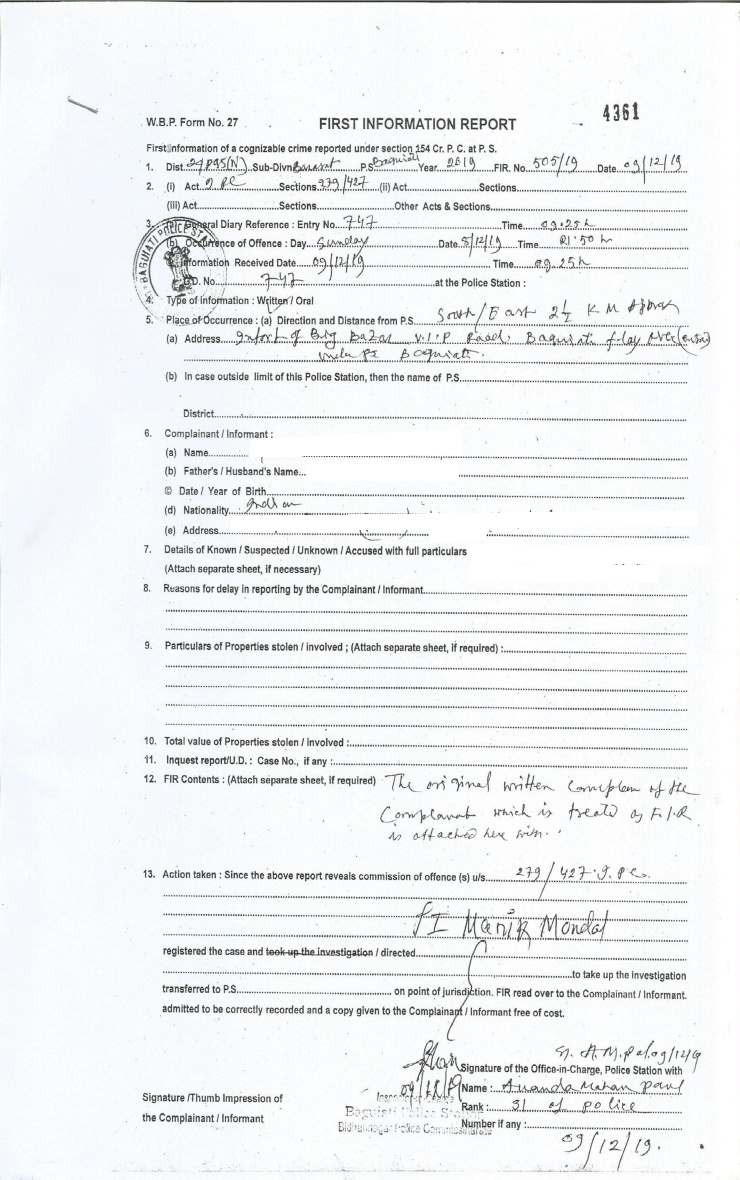 4361
W.B.P. Form No. 27 FIRST INFORMATION REPORT
First Information of a cognizable crime reported under section 154 Cr. P. C. at P. S.
1. Dist 24 PGS(N) Sub-Divn Barasat P.S Baguiati Year 2019 FIR. No. 505/19 Date 09/12/19
2. (i) Act I PC Sections 279/427 (ii) Act Sections
(iii) Act Sections Other Acts & Sections
3. General Diary Reference : Entry No. 747 Time 09.25 h
(b) Occurrence of Offence : Day Sunday Date 8/12/19 Time 21:50 h
Information Received Date 09/12/19 Time 09.25 h
G.D. No. 747 at the Police Station :
BAGUIATI POLICE STA
4. Type of information : Written / Oral
5. Place of Occurrence : (a) Direction and Distance from P.S. South/East 2½ KM
(a) Address Infort of Big Bazar V.I.P Road, Baguiati
under PS Baguiati.
(b) In case outside limit of this Police Station, then the name of P.S.
District
6. Complainant / Informant :
(a) Name
(b) Father's / Husband's Name
© Date / Year of Birth
(d) Nationality Indian
(e) Address
7. Details of Known / Suspected / Unknown / Accused with full particulars
(Attach separate sheet, if necessary)
8. Reasons for delay in reporting by the Complainant / Informant
9. Particulars of Properties stolen / involved ; (Attach separate sheet, if required) :
10. Total value of Properties stolen / involved :
11. Inquest report/U.D. : Case No., if any :
12. FIR Contents : (Attach separate sheet, if required) The original written complain of the
Complanant which is treated as F.I.R
is attached here with.
13. Action taken : Since the above report reveals commission of offence (s) u/s 279/427 I.PC.
SI Manik Mondal
registered the case and took up the investigation / directed
to take up the investigation
transferred to P.S. on point of jurisdiction. FIR read over to the Complainant / Informant.
admitted to be correctly recorded and a copy given to the Complainant / Informant free of cost.
09/12/19
Signature of the Office-in-Charge, Police Station with
09/12/19 Name : Ananda Mohan Paul
Signature/Thumb Impression of
Rank : SI of police
the Complainant / Informant
Baguiati Police Station
Number if any :
Bidhannagar Police Commissionerate
09/12/19.